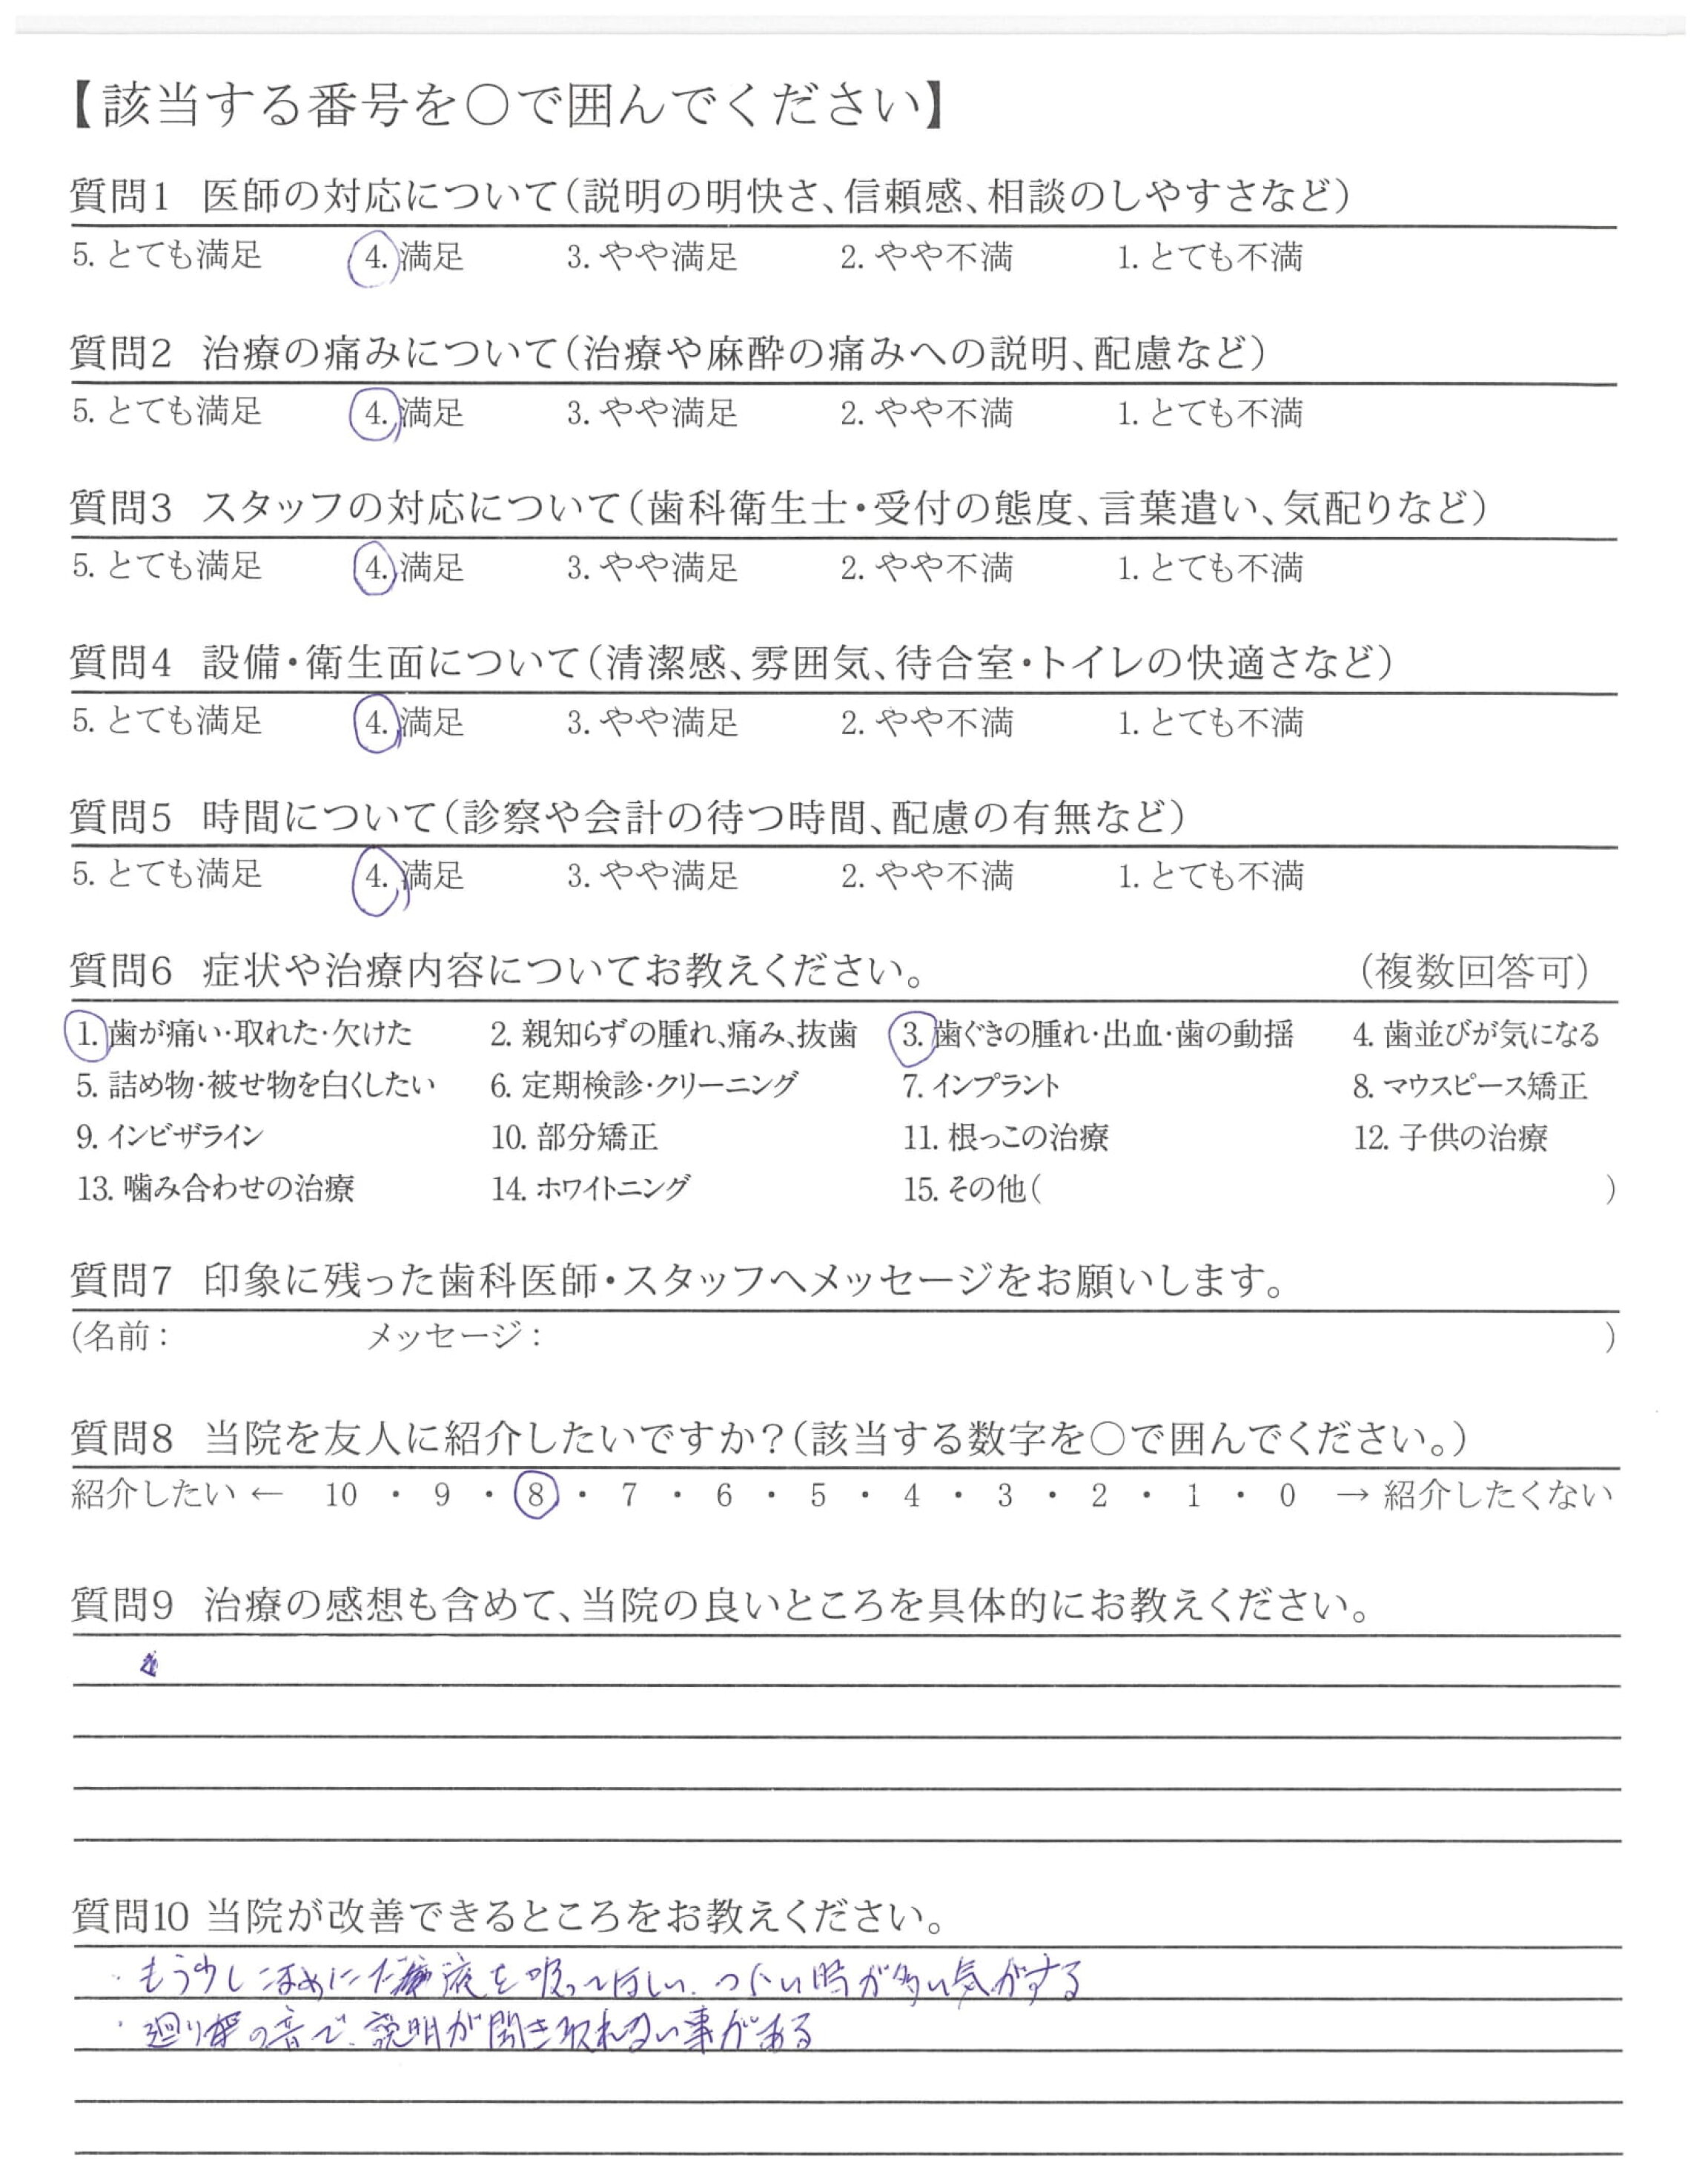 【該当する番号を〇で囲んでください】
質問1 医師の対応について(説明の明快さ、信頼感、相談のしやすさなど)
5. とても満足 4. 満足 3. やや満足 2. やや不満 1. とても不満
質問2 治療の痛みについて(治療や麻酔の痛みへの説明、配慮など)
5. とても満足 4. 満足 3. やや満足 2. やや不満 1. とても不満
質問3 スタッフの対応について(歯科衛生士・受付の態度、言葉遣い、気配りなど)
5. とても満足 4. 満足 3. やや満足 2. やや不満 1. とても不満
質問4 設備・衛生面について(清潔感、雰囲気、待合室・トイレの快適さなど)
5. とても満足 4. 満足 3. やや満足 2. やや不満 1. とても不満
質問5 時間について(診察や会計の待つ時間、配慮の有無など)
5. とても満足 4. 満足 3. やや満足 2. やや不満 1. とても不満
質問6 症状や治療内容についてお教えください。 (複数回答可)
1. 歯が痛い・取れた・欠けた 2. 親知らずの腫れ、痛み、抜歯 3. 歯ぐきの腫れ・出血・歯の動揺 4. 歯並びが気になる
5. 詰め物・被せ物を白くしたい 6. 定期検診・クリーニング 7. インプラント 8. マウスピース矯正
9. インビザライン 10. 部分矯正 11. 根っこの治療 12. 子供の治療
13. 噛み合わせの治療 14. ホワイトニング 15. その他( )
質問7 印象に残った歯科医師・スタッフへメッセージをお願いします。
(名前: メッセージ: )
質問8 当院を友人に紹介したいですか?(該当する数字を〇で囲んでください。)
紹介したい ← 10 ・ 9 ・ 8 ・ 7 ・ 6 ・ 5 ・ 4 ・ 3 ・ 2 ・ 1 ・ 0 → 紹介したくない
質問9 治療の感想も含めて、当院の良いところを具体的にお教えください。
質問10 当院が改善できるところをお教えください。
・もう少しこまめにだ液を吸ってほしい。つらい時が多い気がする
・廻りの音で、説明が聞き取れない事がある